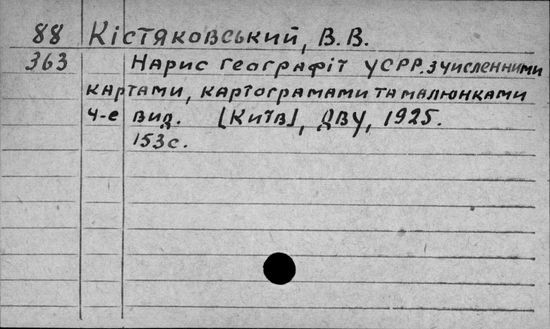 88 Кістяковський, В.В.
363 Нарис географії УСРР. з численними
картами, картограмами та малюнками
4-е вид. [Київ], ДВУ, 1925.
153с.